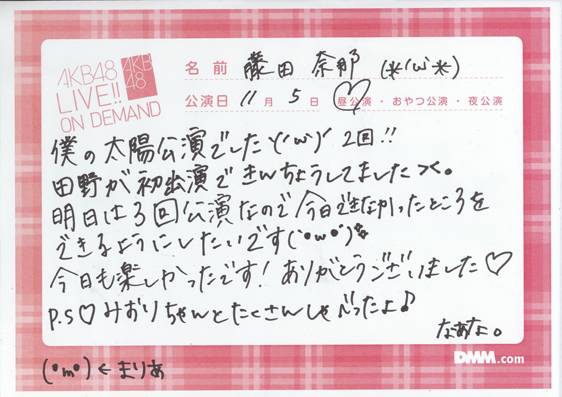 AKB48
LIVE!!
ON DEMAND
AKB
48
名前 藤田 奈那 (*'ω'*)
公演日 11月 5日 昼公演・おやつ公演・夜公演
僕の太陽公演でしたヽ('ω')ノ 2回!!
田野が初出演できんちょうしてましたつく。
明日は3回公演なので今日できなかったところを
できるようにしたいです(`•ω•´)
今日も楽しかったです! ありがとうございました♡
P.S♡みおりちゃんとたくさんしゃべったよ♪
なぁな。
(•m•)←まりあ
DMM.com